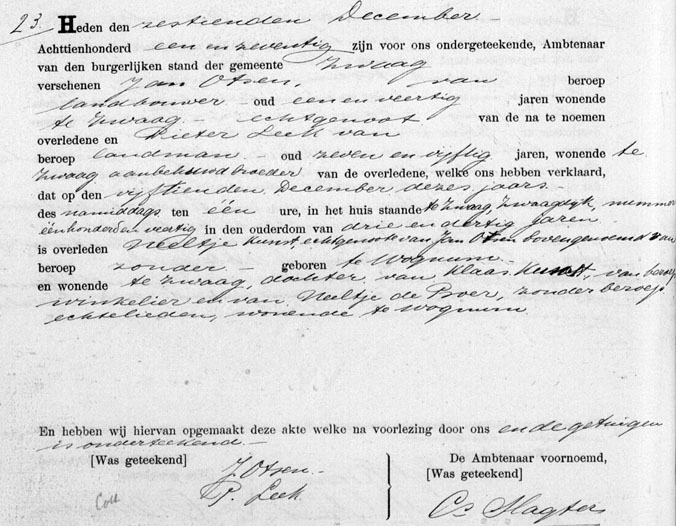 23.
Heden den zestienden December
Achttienhonderd een en zeventig zijn voor ons ondergeteekende, Ambtenaar
van den burgerlijken stand der gemeente Zwaag
verschenen Jan Otsen, van beroep
landbouwer - oud een en veertig jaren wonende
te Zwaag - echtgenoot van de na te noemen
overledene en Pieter Leek van
beroep landman - oud zeven en vijftig jaren, wonende te
Zwaag aanbehuwdbroeder van de overledene, welke ons hebben verklaard,
dat op den vijftienden December dezes jaars -
des namiddags ten één ure, in het huis staande te Zwaag, Zwaagdyk, nummer
éénhonderd en veertig in den ouderdom van drie en dertig jaren
is overleden Neeltje Kunst, echtgenoote van Jan Otsen bovengenoemd van
beroep zonder - geboren te Wognum
en wonende te Zwaag, dochter van Klaas Kunst, van beroep
winkelier en van Neeltje de Boer, zonder beroep
echtelieden, wonende te Wognum
En hebben wij hiervan opgemaakt deze akte welke na voorlezing door ons en de getuigen
is onderteekend. -
[Was geteekend] J Otsen. -
P. Leek
De Ambtenaar voornoemd,
[Was geteekend]
Cs Slagter
Coll